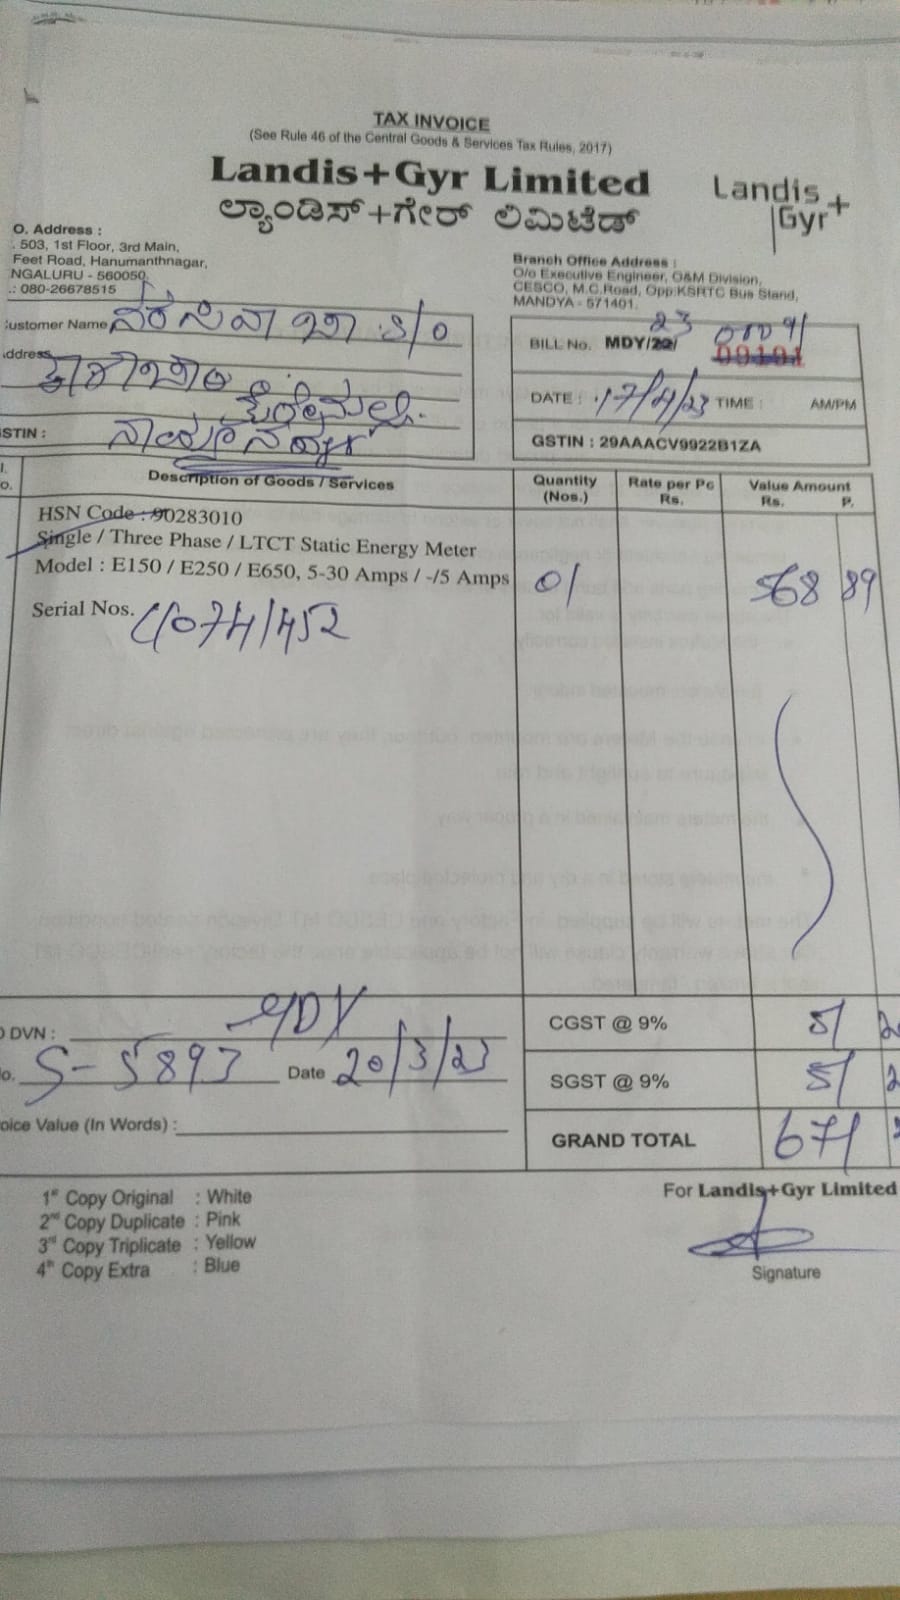 TAX INVOICE
(See Rule 46 of the Central Goods & Services Tax Rules, 2017)
Landis+Gyr Limited
ಲ್ಯಾಂಡಿಸ್+ಗೇರ್ ಲಿಮಿಟೆಡ್
Landis+
Gyr
O. Address :
503, 1st Floor, 3rd Main,
Feet Road, Hanumanthnagar,
NGALURU - 560050.
.: 080-26678515
Branch Office Address :
O/o Executive Engineer, O&M Division,
CESCO, M.C.Road, Opp:KSRTC Bus Stand,
MANDYA - 571401.
Customer Name S/O
Address
STIN :
BILL No. MDY/22/ 23
00101
DATE : 17/4/23 TIME : AM/PM
GSTIN : 29AAACV9922B1ZA
Description of Goods / Services Quantity (Nos.) Rate per Pc Rs. Value Amount Rs. P.
HSN Code : 90283010
Single / Three Phase / LTCT Static Energy Meter
Model : E150 / E250 / E650, 5-30 Amps / -/5 Amps 01 568 89
Serial Nos.
DVN : MDY
o. S-5893 Date 20/3/23
oice Value (In Words) :
CGST @ 9% 51 2
SGST @ 9% 51 2
GRAND TOTAL 671
1st Copy Original : White
2nd Copy Duplicate : Pink
3rd Copy Triplicate : Yellow
4th Copy Extra : Blue
For Landis+Gyr Limited
Signature